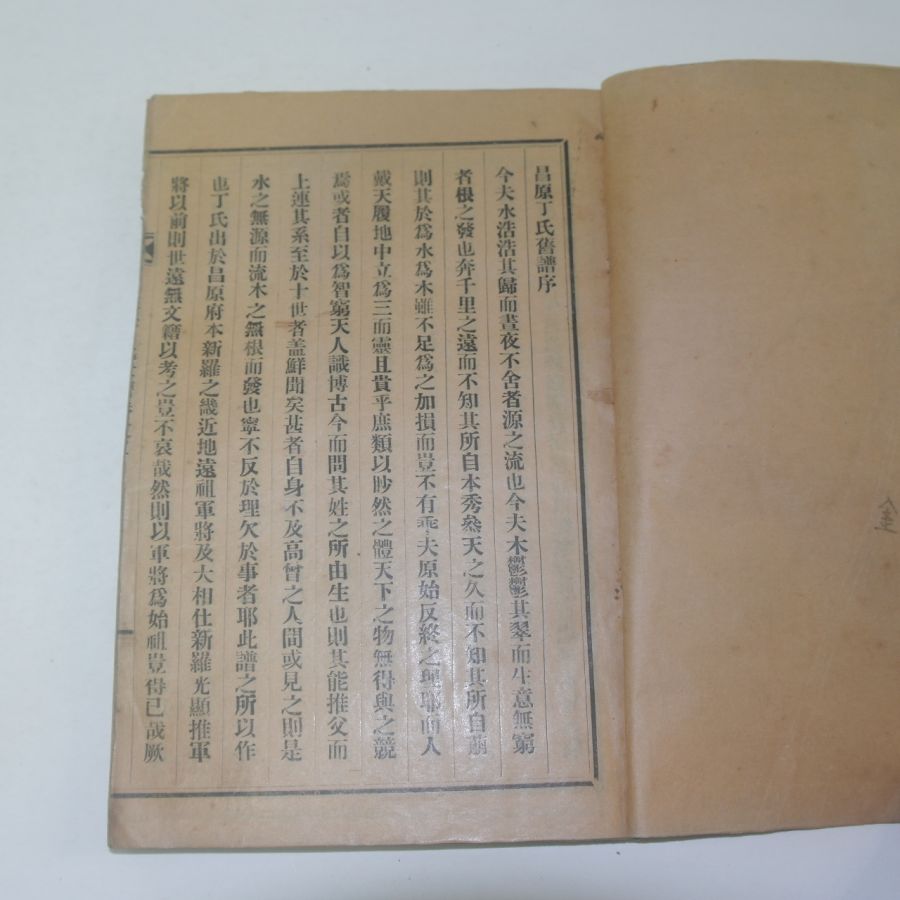 昌原丁氏舊譜序
今夫水浩浩其歸而晝夜不舍者源之流也今夫木鬱鬱其翠而生意無窮
者根之發也奔千里之遠而不知其所自本秀叅天之久而不知其所自萌
則其於爲水爲木雖不足爲之加損而豈不有乖夫原始反終之理耶而人
戴天履地中立爲三而靈且貴乎庶類以眇然之體天下之物無得與之競
焉或者自以爲智窮天人識博古今而問其姓之所由生也則其能推父而
上連其系至於十世者盖鮮聞矣甚者自身不及高曾之人間或見之則是
水之無源而流木之無根而發也寧不反於理欠於事者耶此譜之所以作
也丁氏出於昌原府本新羅之畿近地遠祖軍將及大相仕新羅光顯推軍
將以前則世遠無文籍以考之豈不哀哉然則以軍將爲始祖豈得已哉厥
金